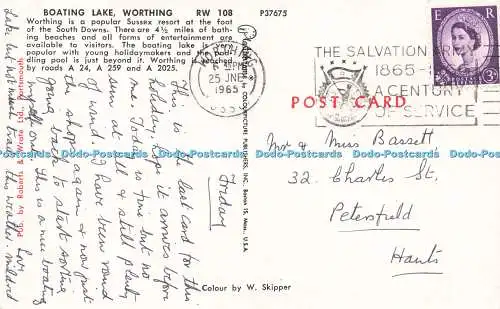 BOATING LAKE, WORTHING RW 108 P37675
Worthing is a popular Sussex resort at the foot
of the South Downs. There are 4½ miles of bat-
hing beaches and all forms of entertainment are
available to visitors. The boating lake is very
popular with young holidaymakers and the pad-
dling pool is seen beyond it. Worthing is reached
by roads A 24, A 259 and A 2025.
Friday
This is the last card for this
holiday. Hope it arrives before
me. Today is fine but no
sun at all & still plenty
of wind. I have been round
the shops again & now just
going back to start sorting
myself out. This is a nice boating
Lake but not much trade this weather.
Love
Mildred
Pub. by Roberts & Wrate Ltd., Portsmouth
COLOURPICTURE PUBLISHERS, INC. Boston 15, Mass., U.S.A.
Colour by W. Skipper
POST CARD
25 JNE
1965
THE SALVATION ARMY
1865-
A CENTURY
OF SERVICE
E R
POSTAGE REVENUE
3D
Mr & Miss Bassett
32, Charles St,
Petersfield
Hants
www.postcardsworldwide.co.uk